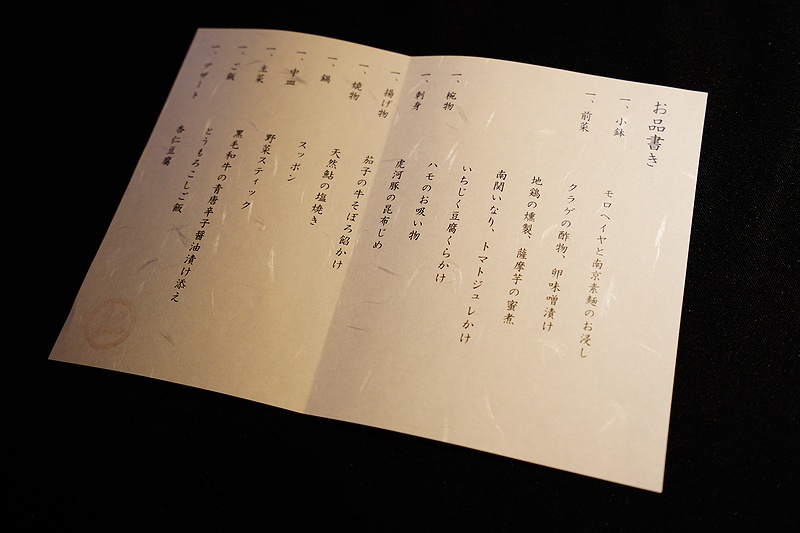 お品書き
一、小鉢
モロヘイヤと南京素麺のお浸し
一、前菜
クラゲの酢物、卵味噌漬け
地鶏の燻製、薩摩芋の蜜煮
南関いなり、トマトジュレかけ
いちじく豆腐くらかけ
一、椀物
ハモのお吸い物
一、刺身
虎河豚の昆布じめ
一、揚げ物
茄子の牛そぼろ餡かけ
一、焼物
天然鮎の塩焼き
一、鍋
スッポン
一、中皿
野菜スティック
一、主菜
黒毛和牛の青唐辛子醤油漬け添え
一、ご飯
とうもろこしご飯
一、デザート
杏仁豆腐